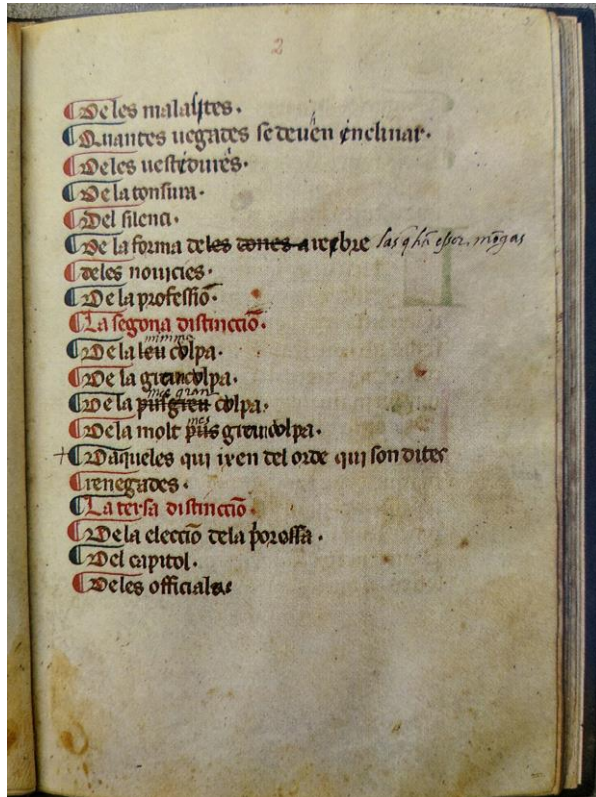 2
De les malalties.
Quantes uegades se deuen enclinar.
De les uestidures.
De la tonsura.
Del silenci.
De la forma de les dones a recebre las q̄ hā esser mōgas
deles nouicies.
De la professio̅.
La segona distinccio̅.
minime
De la leu colpa.
De la greu colpa.
mes gran
De la pus greu colpa.
mes
Dela molt pus greu colpa.
Daqueles qui ixen del orde qui son dites
renegades.
La tersa distinccio̅.
De la eleccio̅ dela porossa.
Del capitol.
De les officials